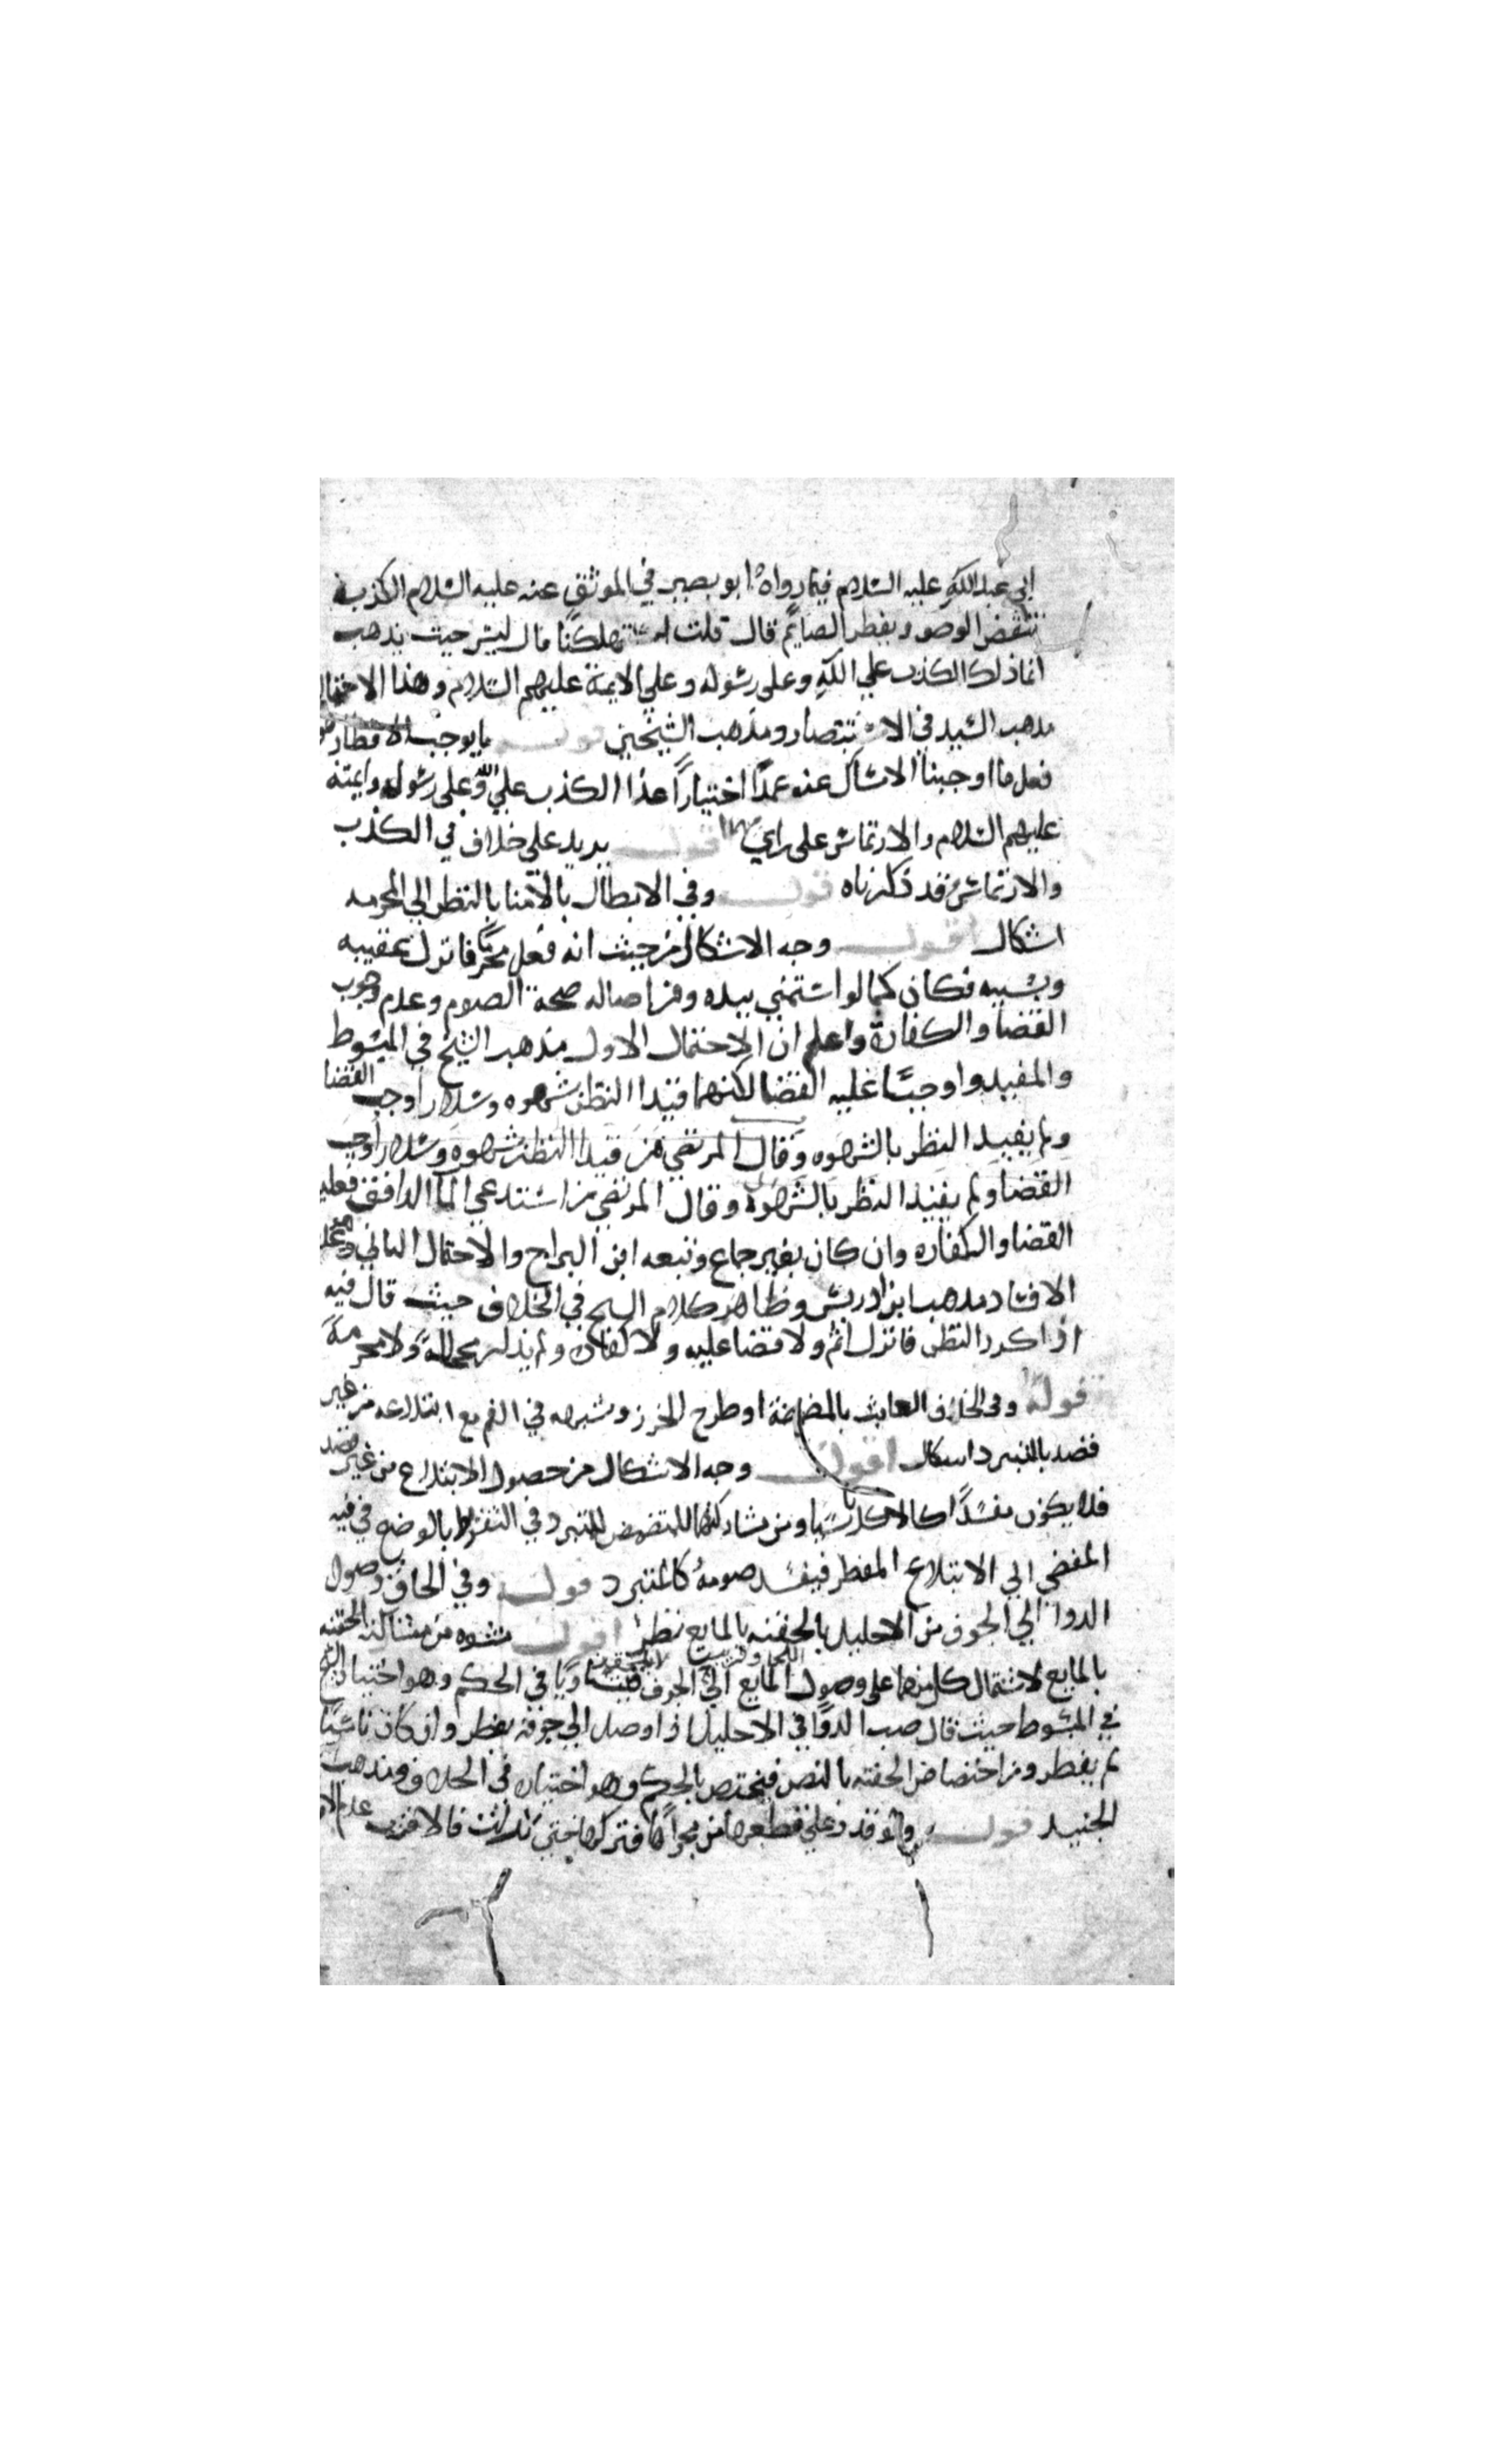 ابي عبد الله عليه السلام فيما رواه ابو بصير في الموثق عنه عليه السلام الكذبة
تنقض الوضو ويفطر الصايم قال قلت له هلكنا قال ليس حيث يذهب
انما ذلك الكذب علي الله وعلى رسوله وعلي الايمة عليهم السلام وهذا الاحتمال
مذهب السيد في الانتصار ومذهب الشيخين قوله ما يوجب الافطار
فعل ما اوجبنا الامساك عنه عمدا اختيارا عدا الكذب علي الله وعلى رسوله وايمته
عليهم السلام والارتماس على راي اقول يريد على خلاف في الكذب
والارتماس وقد ذكرناه قوله وفي الابطال بالامنا بالنظر الي المحرمه
اشكال اقول وجه الاشكال من حيث انه فعل محرما فانزل عقيبه
وبسببه فكان كما لو استمني بيده ومن اصاله صحة الصوم وعدم وجوب
القضا والكفارة واعلم ان الاحتمال الاول مذهب الشيخ في المبسوط
والمفيد واوجبا عليه القضا لكنهما قيدا النظر بشهوه وسلار اوجب القضا
ولم يقيد النظر بالشهوه وقال المرتضي من قيدا النظر بشهوه وسلار اوجب
القضا ولم يقيد النظر بالشهوة وقال المرتضي من استدعي الما الدافق فعليه
القضا والكفاره وان كان بغير جماع وتبعه ابن البراج والاحتمال الثاني وهو عدم
الافساد مذهب ابن ادريس وظاهر كلام الشيخ في الخلاف حيث قال فيه
اذا كرر النظر فانزل اثم ولا قضا عليه ولا كفاره ولم يذكر محللة ولا محرمة
قوله وفي الحاق العابث بالمضمضة او طرح الخرز وشبهه في الفم مع ابتلاعه من غير
قصد بالتبرد اشكال اقول وجه الاشكال من حصول الابتلاع من غير قصد
فلا يكون مفسدا كالاكل ناسيا ومن مشاركتهما للمتمضمض للتبرد في التفريط بالوضع في فيه
المفضي الي الابتلاع المفطر فيفسد صومه كالمتبرد قوله وفي الحاق وصول
الدوا الي الجوف من الاحليل بالحقنه بالمايع نظر اقول منشوه من مشاكلته الحقنه
بالمايع لاشتمال كل منهما على وصول المايع الي الجوف فيتساويا في الحكم وهو اختيار الشيخ
في المبسوط حيث قال صب الدوا في الاحليل اذا وصل الي جوفه يفطر وان كان ناسيا
لم يفطر ومن اختصاص الحقنه بالنص فيختص بالحكم وهو اختياره في الخلاف ومذهب
الجنيد قوله ولو قدر على قطعها من مجراها فتركها حتي نزلت فالاقرب عدم